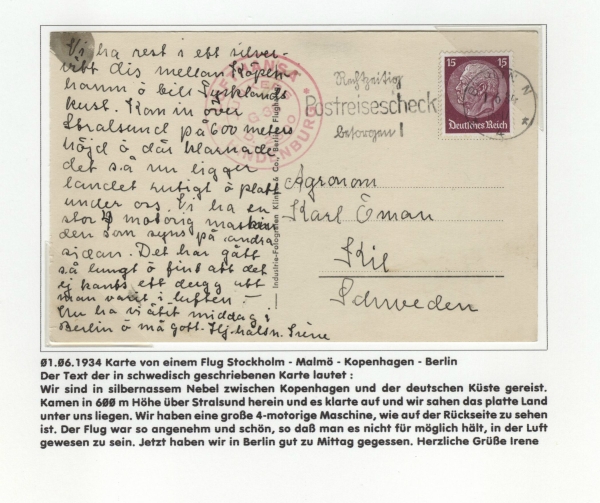 Vi ha rest i ett silver-
vått dis mellan Köpen-
hamn o bili Tysklands
kust. Kom in över
Stralsund på 600 meters
höjd o där klarnade
det så nu ligger
landet rutigt o platt
under oss. Vi ha en
stor 4 motorig maskin
den som syns på andra
sidan. Det har gått
så lungt o fint att det
ej känts ett dugg att
man varit i luften. –
Nu ha vi ätit middag i
Berlin o må gott. Hj. hälsn. Irene
LUFTHANSA
BRANDENBURG
Rechtzeitig
Postreisescheck
besorgen!
15 15
Deutsches Reich
Industrie-Fotografen Klinke & Co., Berlin
Agronom
Karl Öman
Kil
Schweden
01.06.1934 Karte von einem Flug Stockholm - Malmö - Kopenhagen - Berlin
Der Text der in schwedisch geschriebenen Karte lautet :
Wir sind in silbernassem Nebel zwischen Kopenhagen und der deutschen Küste gereist.
Kamen in 600 m Höhe über Stralsund herein und es klarte auf und wir sahen das platte Land
unter uns liegen. Wir haben eine große 4-motorige Maschine, wie auf der Rückseite zu sehen
ist. Der Flug war so angenehm und schön, so daß man es nicht für möglich hält, in der Luft
gewesen zu sein. Jetzt haben wir in Berlin gut zu Mittag gegessen. Herzliche Grüße Irene